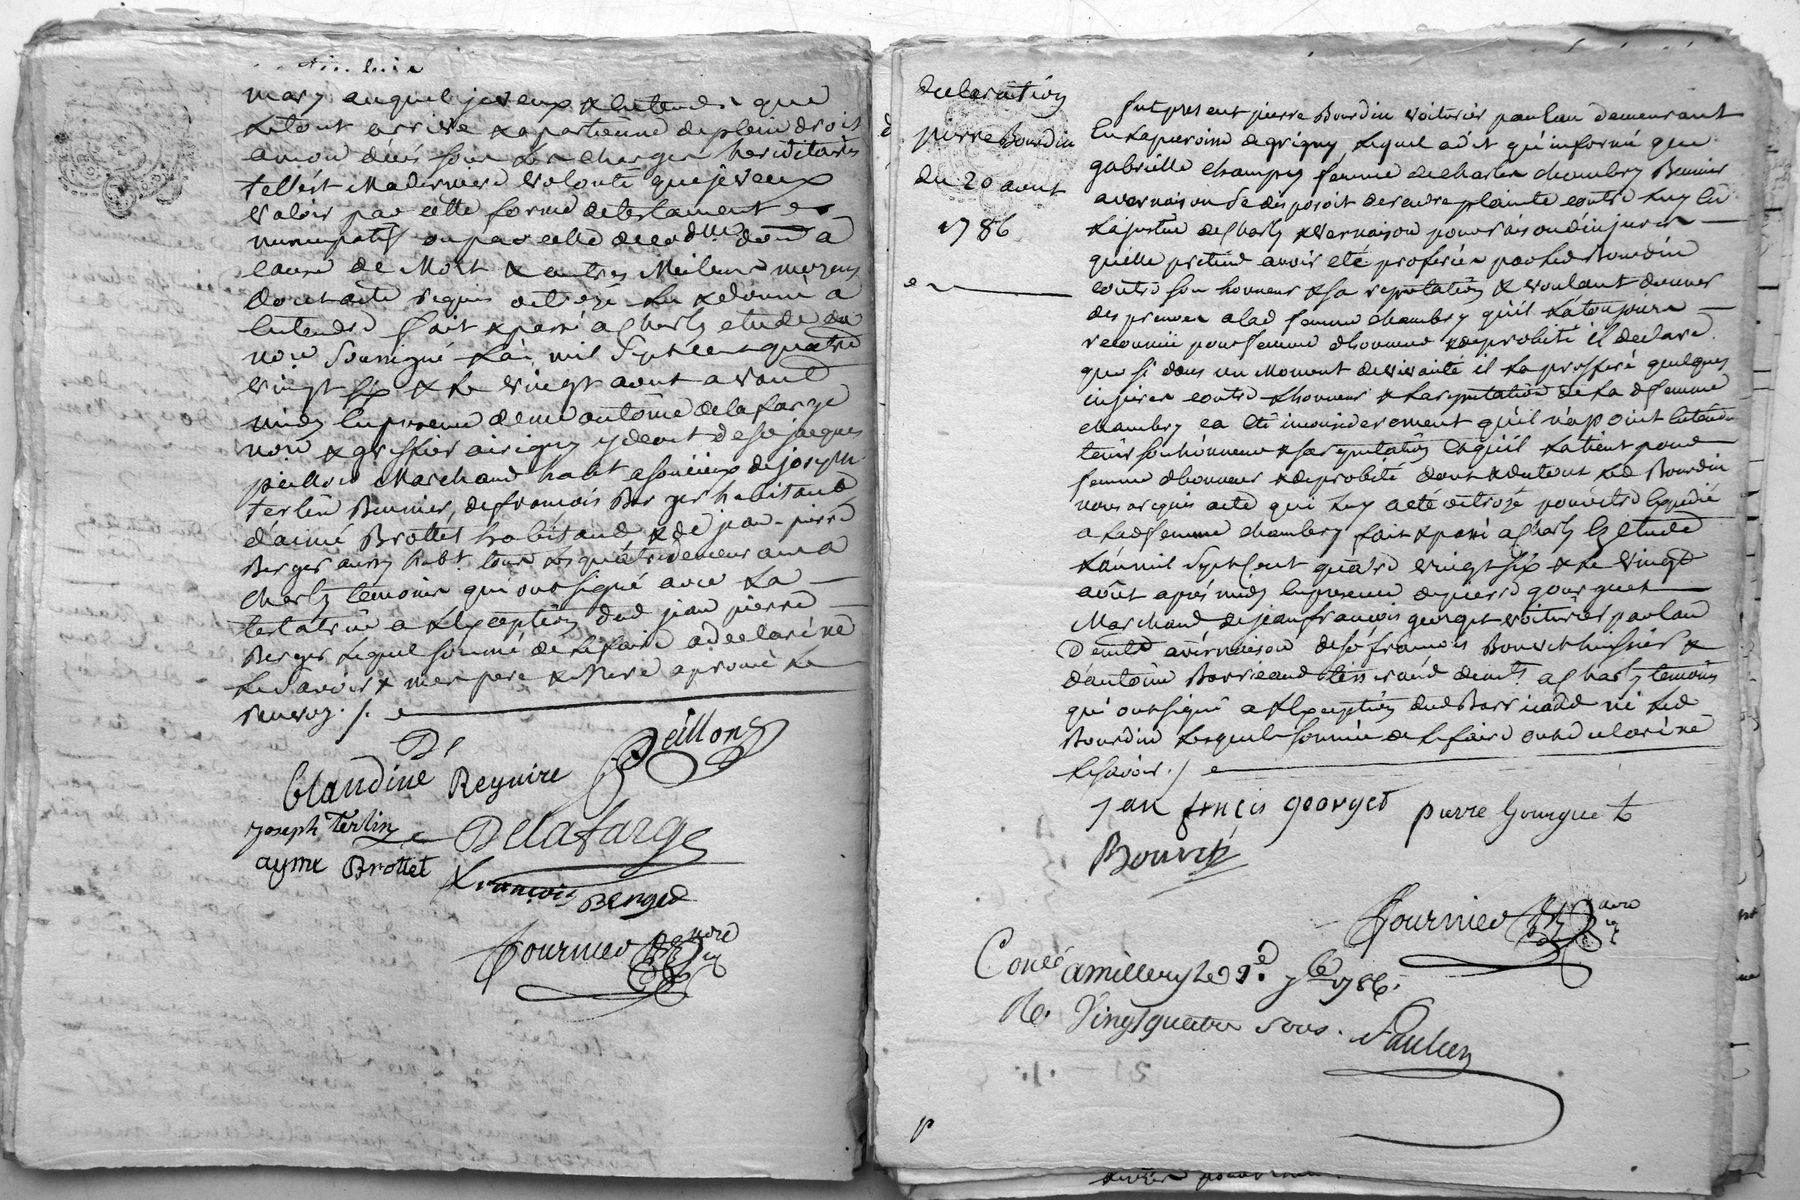 mary auquel je veux & entends que
le tout arrive & apartienne de plein droit
a mon décés sous les charges hereditaires
telle est Ma derniere volonté que je veux
valoir par cette forme de testament
nuncupatif ou par celle de codlle donn a
cause de Mort & autres Meilleurs moyens
dont acte requis octroyé lu & donné a
entendre fait & passé a Charly etude du
nore soussigné L'an mil Sept cent quatre
vingt six & le vingt aout avant
midy en presence de me antoine delafarge
nore & greffier a irigny y demt de sr jacques
peillon Marchand habt a soucieux de joseph
terlin Benier, de françois Berger habitant
d'aimé Brottet habitant & de jean-pierre
Berger aussy habt. tous les quatre demeurants a
Charly temoins qui ont signé avec La
testatrice a L'exception dud jean pierre
Berger Lequel sommé de Le faire a declaré ne
Le savoir & mer pere & Mere aprouvé Le
renvoy ./.
De
Claudine Reynire Peillon
Joseph Terlin Delafarge
ayme Brottet françois Berger
Fournier nore
declaration
pierre Bourdin
du 20 aout
1786
fut present pierre Bourdin voiturier par eau demeurant
en La paroisse de grigny, Lequel a dit qu'informé que
gabrielle champy femme de charles chambry Benier
a vernaison se disposoit de rendre plainte contre Luy en
La justice de Charly & vernaison pour raison d'injures
qu'elle pretend avoir été proferées par Led Bourdin
contre son honneur & sa reputation & voulant donner
des preuves a lad femme chambry qu'il L'a toujours
reconnüe pour femme d'honneur & de probité il declare
que si dans un Moment de vivacité il La proferé quelques
injures contre L'honneur & La reputation de La d femme
chambry ca été inconsiderement qu'il n'a point entendu
ternir son honneur & sa reputation & qu'il La tient pour
femme d'honneur & de probité dont & du tout Led Bourdin
nous a requis acte qui Luy a été octroyé pour être Expedié
a Lad femme chambry fait & passé a Charly Es etude
L'an mil Sept Cent quatre vingt six & Le vingt
août aprés midy En presence de pierre gourguet
Marchand de jean françois georget voiturier par eau
Demts a vernaison de sr françois Bouvet huissier &
d'antoine Barricand tisserand demts a Charly temoins
qui ont signé a L'exception dud Barricand ni Led
Bourdin Lesquels sommés de Le faire ont declaré ne
Le savoir ./.
jan frncis georget pierre Gourguet
Bouvet
Fournier nore
Conlé a millery Le 1er 7bre 1786.
R. Vingt quatre sous. Paulin